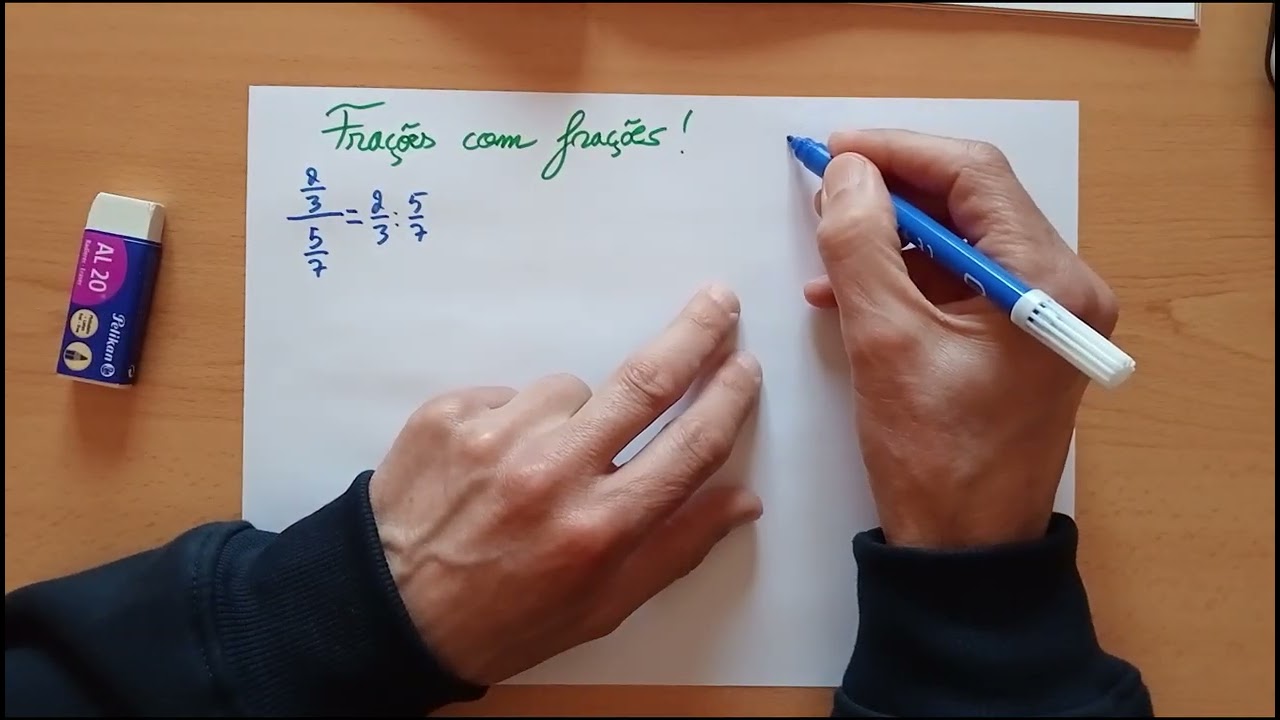 Frações com frações!
2/3 / 5/7 = 2/3 : 5/7
AL 20
Pelikan